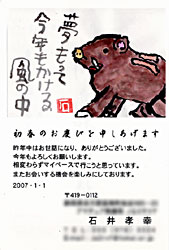 夢もって
今年もかける
風の中
初春のお慶びを申しあげます
昨年中はお世話になり、ありがとうございました。
今年もよろしくお願いします。
相変わらずマイペースで行こうと思っています。
またお会いする機会を楽しみにしております。
2007・1・1
〒419-0112
石井孝幸